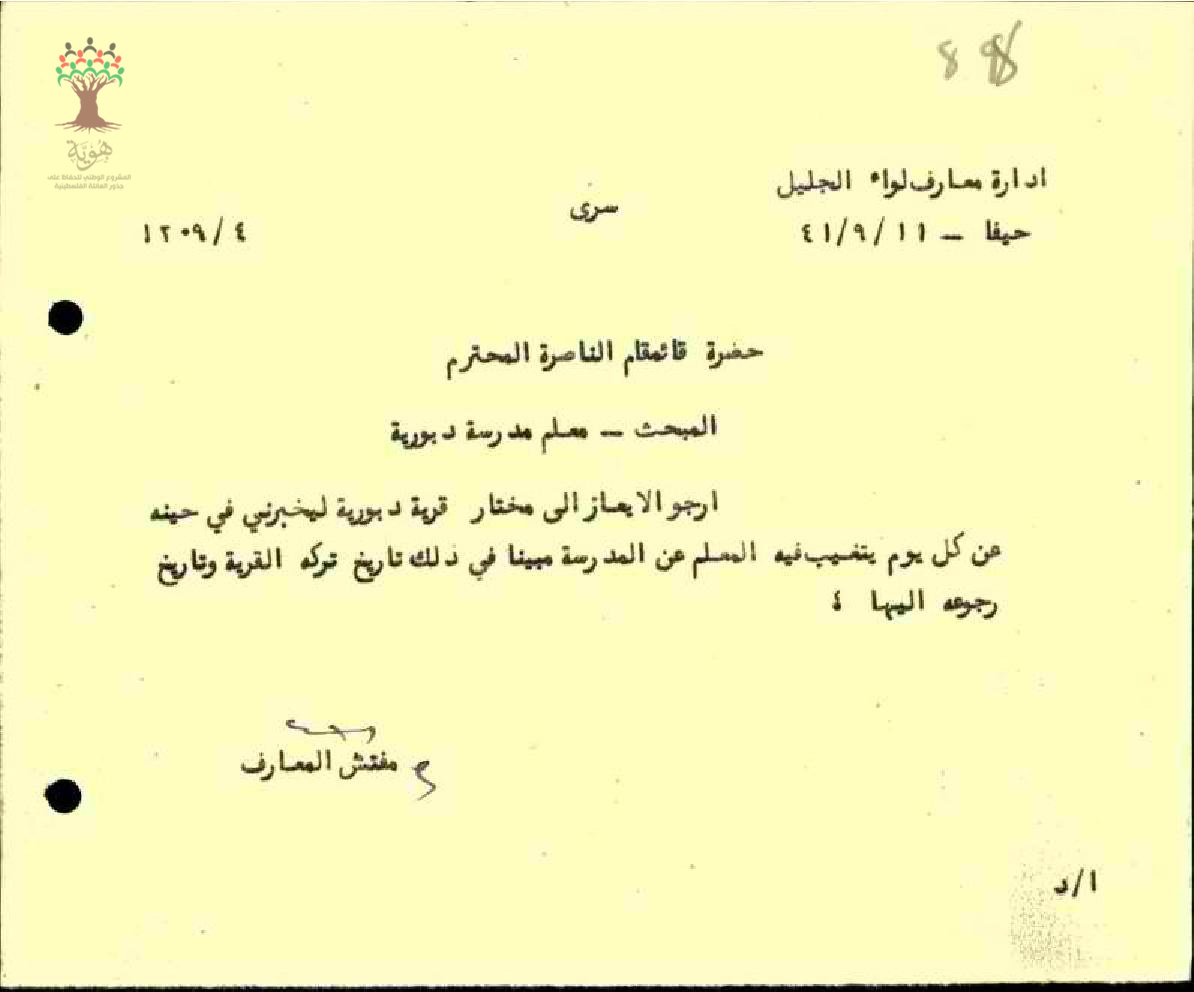 88
هوية
المشروع الوطني للحفاظ على
جذور العائلة الفلسطينية
ادارة معارف لواء الجليل
سرى
حيفا — ٤١/٩/١١
١٢٠٩/٤
حضرة قائمقام الناصرة المحترم
المبحث — معلم مدرسة دبورية
ارجو الايعاز الى مختار قرية دبورية ليخبرني في حينه
عن كل يوم يتغيب فيه المعلم عن المدرسة مبينا في ذلك تاريخ تركه القرية وتاريخ
رجوعه اليها ؛
مفتش المعارف
ا/د